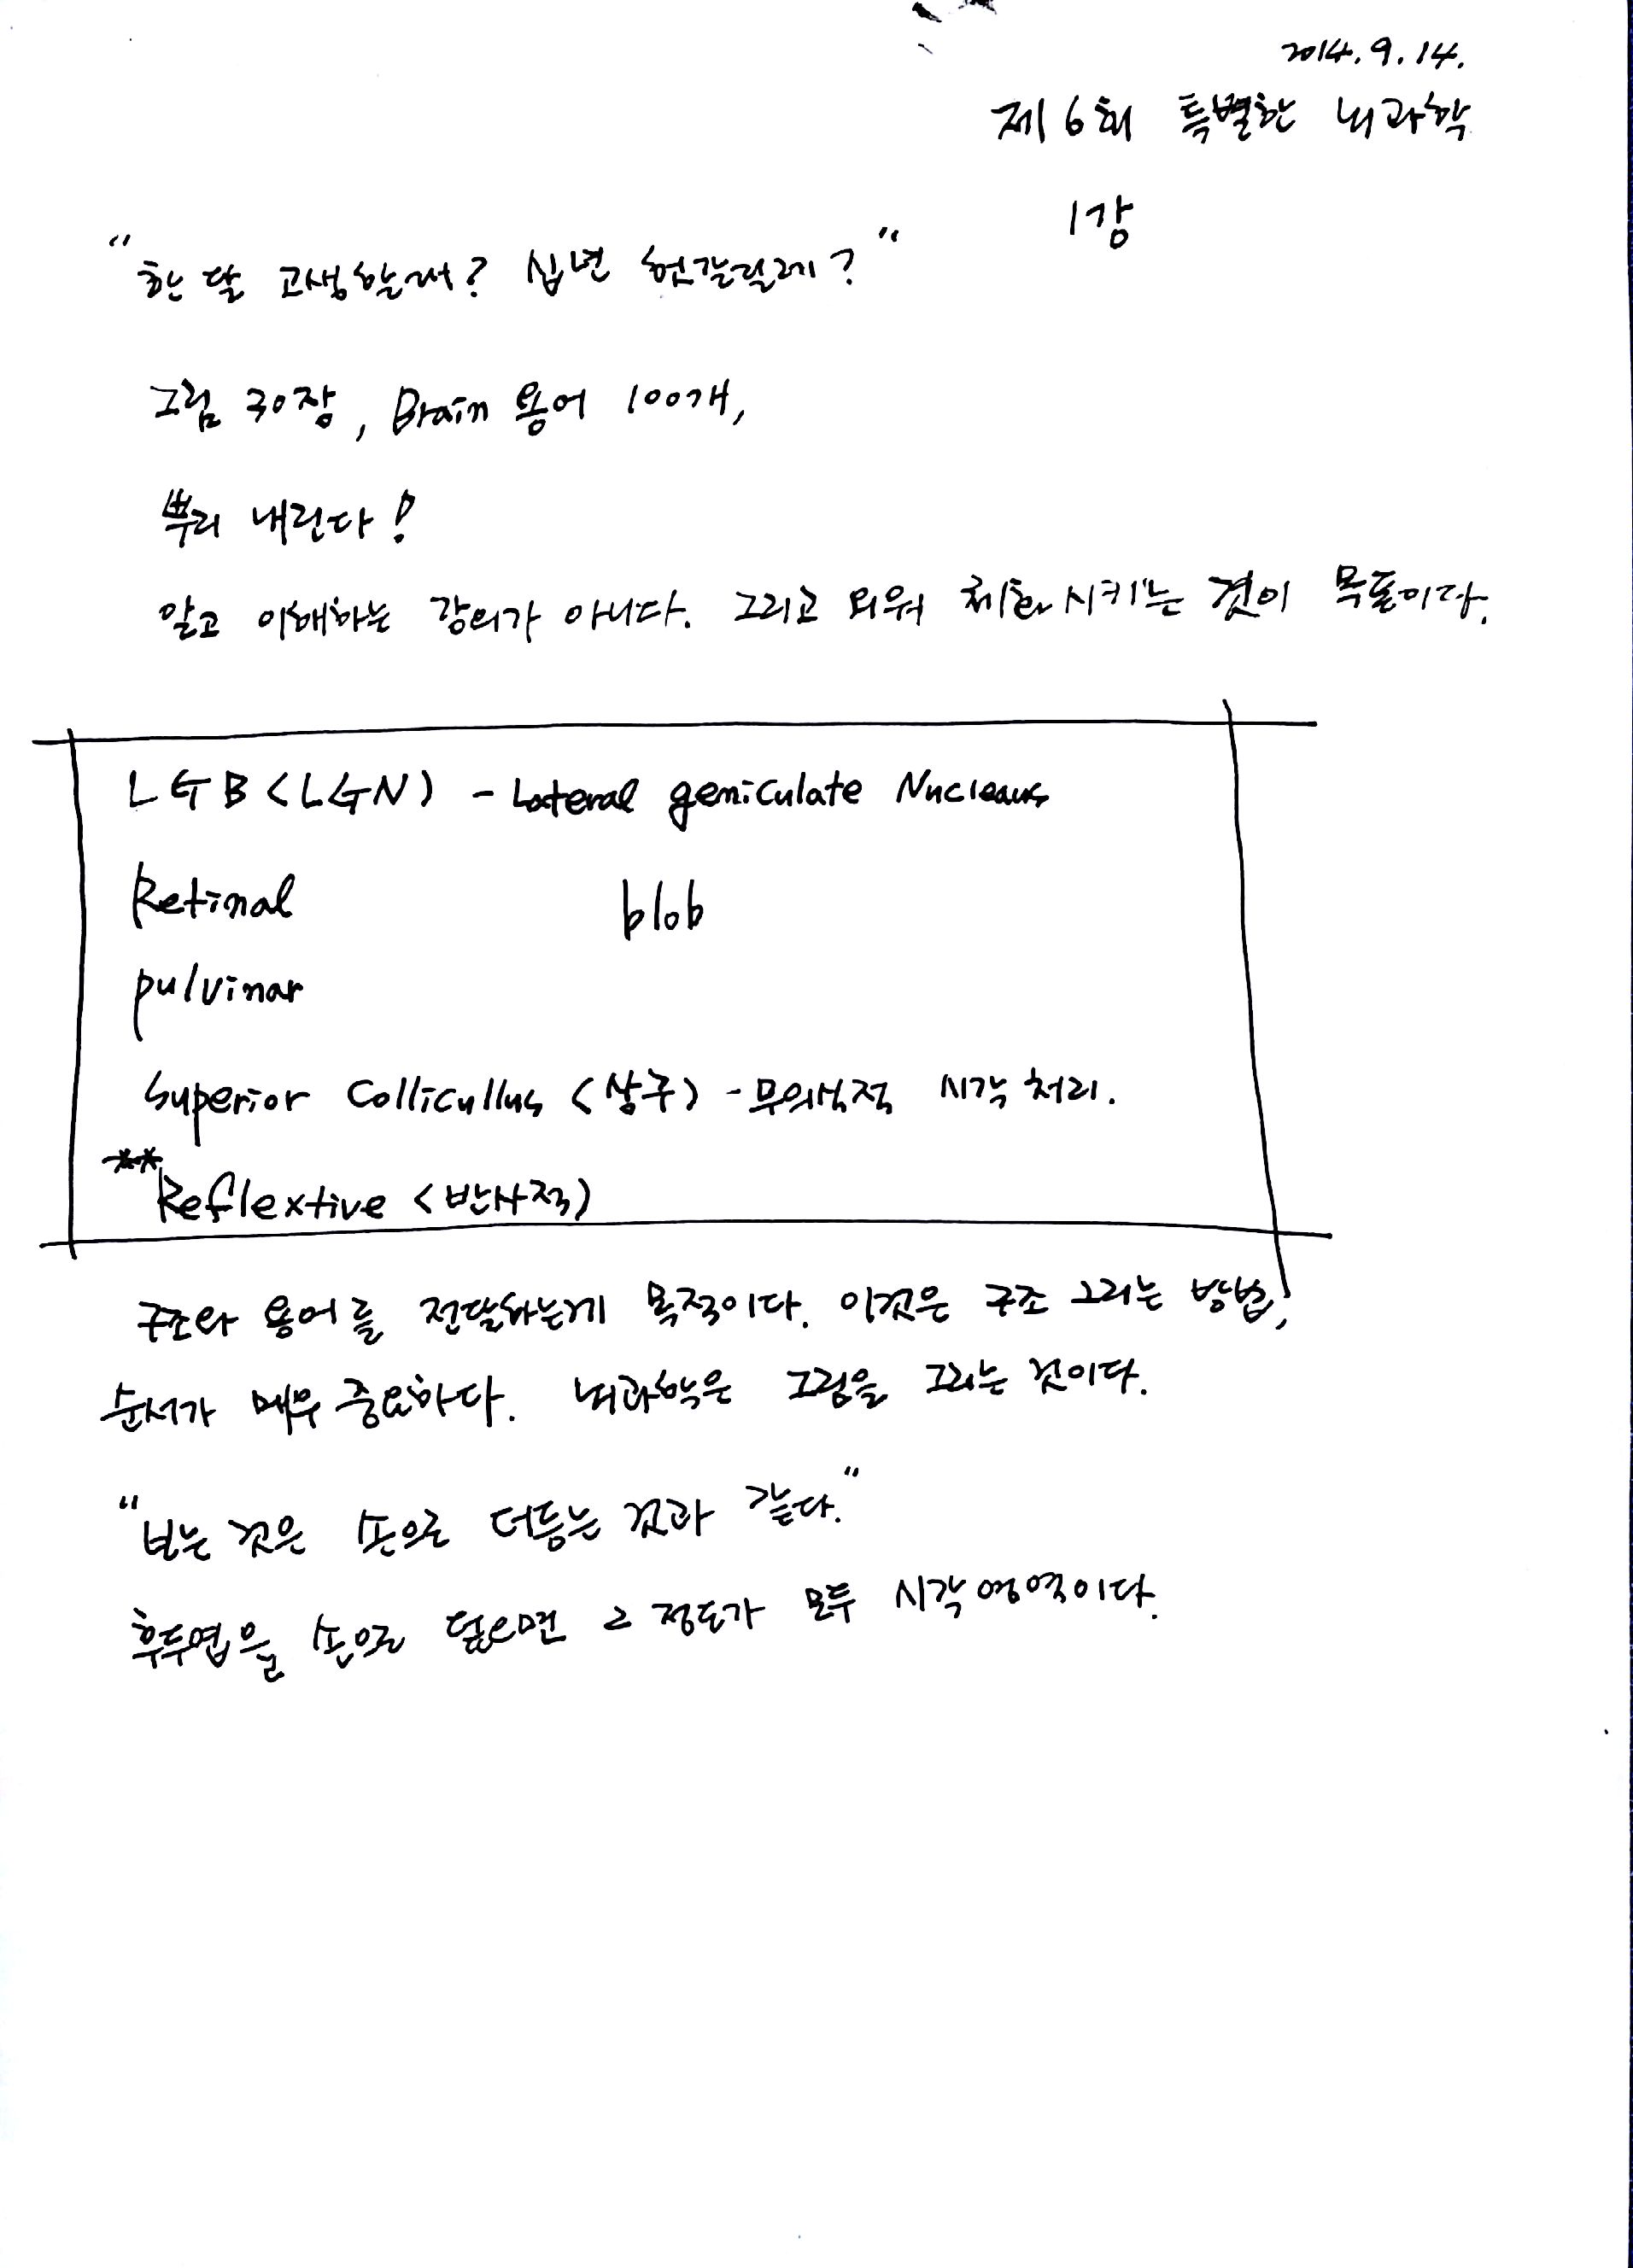 2014.9.14.
제6회 특별한 뇌과학
1강
"한 달 고생할래? 십년 헌갈릴레?"
그림 30장, Brain 용어 100개,
뿌리 내린다!
알고 이해하는 강의가 아니다. 그리고 외워 체화시키는 것이 목표이다.
LGB (LGN) - Lateral geniculate Nucleaus
Retinal blob
pulvinar
Superior Collicullus (상구) - 무의식적 시각 처리.
** Reflextive (반사적)
구조와 용어를 전달하는게 목적이다. 이것은 구조 그리는 방법,
순서가 매우 중요하다. 뇌과학은 그림을 그리는 것이다.
"보는 것은 손으로 더듬는 것과 같다."
후두엽을 손으로 덮으면 그 정도가 모두 시각영역이다.